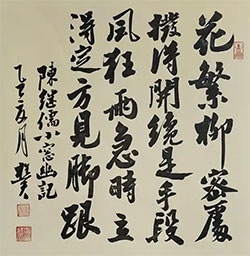 花繁柳密處
撥得開纔是手段
風狂雨急時立
得定方見脚跟
陳继儒小窗幽記